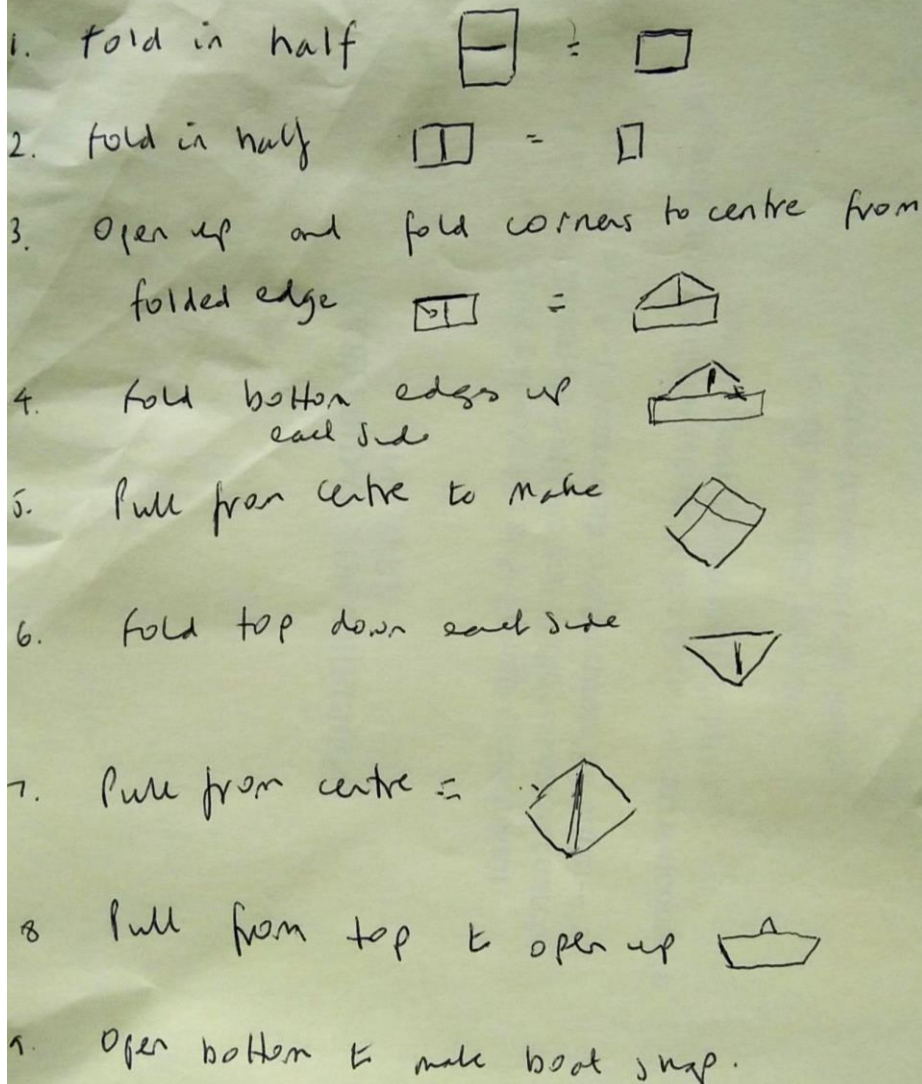 1. fold in half =
2. fold in half =
3. Open up and fold corners to centre from
folded edge =
4. Fold bottom edges up
each side
5. Pull from centre to make
6. Fold top down each side
7. Pull from centre =
8 Pull from top to open up
9. Open bottom to make boat shap.